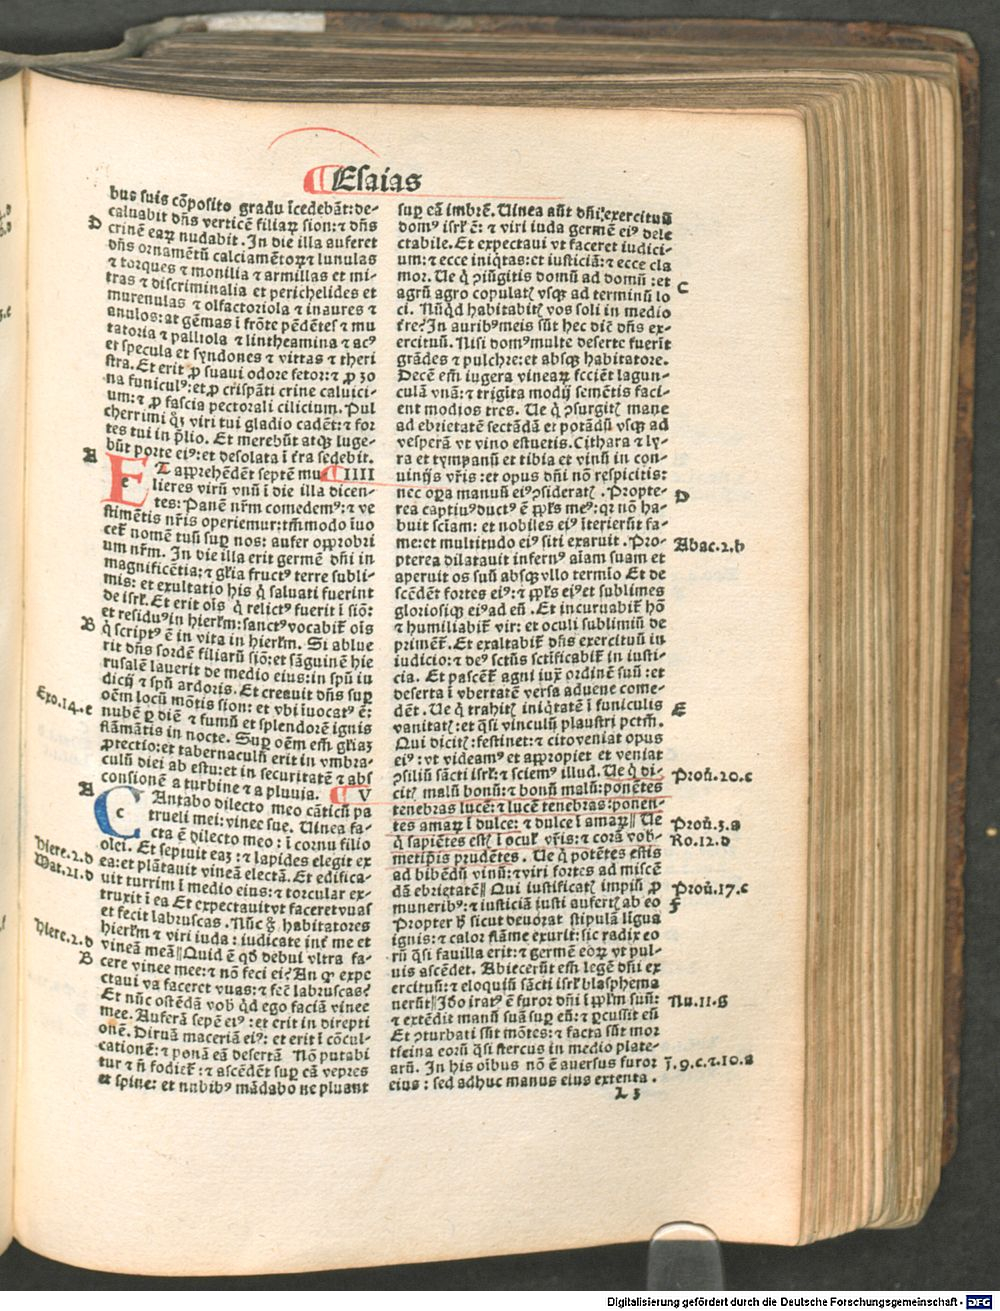 Esaias
bus suis cōposito gradu īcedebāt: de-
caluabit dn̄s verticē filiaꝝ sion: ⁊ dn̄s
D
crinē eaꝝ nudabit. In die illa auferet
dn̄s ornamētū calciamētoꝝ ⁊ lunulas
⁊ torques ⁊ monilia ⁊ armillas et mi-
tras ⁊ discriminalia et perichelides et
murenulas ⁊ olfactoriola ⁊ inaures ⁊
anulos: at gēmas ī frōte pēdētes ⁊ mu
tatoria ⁊ palliola ⁊ lintheamina ⁊ acꝰ
et specula et syndones ⁊ vittas ⁊ theri
stra. Et erit ꝓ suaui odore fetor: ⁊ ꝓ zo
na funiculꝰ: et ꝓ crispāti crine caluici-
um: ⁊ ꝓ fascia pectorali cilicium. Pul
cherrimi qͦꝫ viri tui gladio cadēt: ⁊ for
tes tui in p̄lio. Et merebūt atqꝫ luge-
būt porte eiꝰ: et desolata ī t̄ra sedebit.
A
ET apprehēdēt septē mu IIII
lieres virū vnū ī die illa dicen-
tes: Panē nr̄m comedemꝰ: ⁊ ve
stimētis nr̄is operiemur: tm̄modo īuo
cet̄ nomē tuū suꝑ nos: aufer opprobri
um nr̄m. In die illa erit germē dn̄i in
magnificētia; ⁊ gl̄ia fructꝰ terre subli-
mis: et exultatio his q̄ saluati fuerint
de isrl̄. Et erit oīs q̄ relictꝰ fuerit ī siō:
et residuꝰ in hierlm̄: sanctꝰ vocabit̄ oīs
B
q̄ scriptꝰ ē in vita in hierlm̄. Si ablue
rit dn̄s sordē filiarū siō: et sāguinē hie
rusalē lauerit de medio eius: in spū iu
dicij ⁊ spū ardoris. Et creauit dn̄s suꝑ
Exo.14.e
oēm locū mōtis sion: et vbi īuocatꝰ ē:
nubē ꝑ diē ⁊ fumū et splendorē ignis
flāmātis in nocte. Suꝑ oēm em̄ gl̄iaꝫ
ꝓtectio: et tabernaculū erit in vmbra-
culū diei ab estu: et in securitatē ⁊ abs
consionē a turbine ⁊ a pluuia. V
A
CAntabo dilecto meo cāticū pa
trueli mei: vinee sue. Uinea fa-
cta ē dilecto meo: ī cornu filio
olei. Et sepiuit eaꝫ: ⁊ lapides elegit ex
Hiere.2.d
ea: et plātauit vineā electā. Et edifica-
Mat.21.d
uit turrim ī medio eius: ⁊ torcular ex-
truxit ī ea Et expectauit vt faceret vuas
et fecit labruscas. Nūc g̊ habitatores
hierlm̄ ⁊ viri iuda: iudicate int̄ me et
Hiere.2.d
vineā meā Quid ē qd̄ debui vltra fa-
B
cere vinee mee: ⁊ nō feci ei? An qꝛ expe
ctaui va faceret vuas: ⁊ fec̄ labruscas?
Et nūc ostēdā vob̄ qd̄ ego faciā vinee
mee. Auferā sepē eiꝰ: et erit in direpti
onē. Diruā maceriā eiꝰ: et erit ī cōcul-
cationē: ⁊ ponā eā desertā Nō putabi
tur ⁊ n̄ fodiet̄: ⁊ ascēdēt suꝑ eā vepres
et spine: et nubibꝰ mādabo ne pluant
suꝑ eā imbrē. Uinea aūt dn̄i exercituū
domꝰ isrl̄ ē: ⁊ viri iuda germē eiꝰ dele
ctabile. Et expectaui vt faceret iudici-
um: ⁊ ecce iniqtas: et iusticiā: ⁊ ecce cla
mor. Ue q̄ ꝯiūgitis domū ad domū: et
C
agrū agro copulatꝭ vsqꝫ ad terminū lo
ci. Nūqd habitabitꝭ vos soli in medio
t̄re? In auribꝰ meis sūt hec diē dn̄s ex-
ercituū. Nisi domꝰ multe deserte fuerīt
grādes ⁊ pulchre: et absqꝫ habitatore.
Decē em̄ iugera vineaꝝ fcc̄ient lagun-
culā vnā: ⁊ trigīta modij semētis faci-
ent modios tres. Ue q̄ ꝯsurgitꝭ mane
ad ebrietatē sectādā et potādū vsqꝫ ad
vesperā vt vino estuetis. Cithara ⁊ ly-
ra et tympanū et tibia et vinū in con-
uiuijs vr̄is: et opus dn̄i nō respicitis:
nec oꝑa manuū eiꝰ ꝯsideratꝭ. Propte-
D
rea captiuꝰ ductꝰ ē ppl̄s meꝰ: qꝛ nō ha-
buit sciam: et nobiles eiꝰ īterierūt fa-
me: et multitudo eiꝰ siti exaruit. Pro-
Abac.2.b
pterea dilatauit infernꝰ aīam suam et
aperuit os suū absqꝫ vllo termīo Et de
scēdēt fortes eiꝰ: ⁊ ppl̄s eiꝰ et sublimes
gloriosiqꝫ eiꝰ ad eū. Et incuruabit̄ hō
⁊ humiliabit̄ vir: et oculi sublimiū de
primēt̄. Et exaltabit̄ dn̄s exercituū in
iudicio: ⁊ deꝰ sctūs sctīficabit̄ in iusti-
cia. Et pascēt̄ agni iux̄ ordinē suū: et
deserta ī vbertatē versa aduene come-
dēt. Ue q̄ trahitꝭ iniqtatē ī funiculis
E
vanitatꝭ: et qͣsi vinculū plaustri pctm̄.
Qui dicitꝭ: festinet: ⁊ cito veniat opus
eiꝰ: vt videamꝰ et appropiet et veniat
ꝯsiliū sācti isrl̄: ⁊ sciemꝰ illud. Ue q̄ di-
Prou̅.20.c
citꝭ malū bonū: ⁊ bonū malū: ponētes
tenebras lucē: ⁊ lucē tenebras: ponen-
tes amaꝝ ī dulce: ⁊ dulce ī amaꝝ Ue
Prou̅.3.a
q̄ sapiētes estꝭ ī oculꝭ vr̄is: ⁊ corā vob̄-
Ro.12.d
metip̄is prudētes. Ue q̄ potētes estis
ad bibēdū vinū: ⁊ viri fortes ad miscē
dā ebrietatē Qui iustificatꝭ impiū ꝓ
Prou̅.17.c
muneribꝰ: ⁊ iusticiā iusti aufertꝭ ab eo
F
Propter ħ sicut deuorat stipulā līgua
ignis: ⁊ calor flāme exurit: sic radix eo
rū qͣsi fauilla erit: ⁊ germē eoꝝ vt pul-
uis ascēdet. Abiecerūt em̄ legē dn̄i ex
ercituū: ⁊ eloquiū sācti isrl̄ blasphema
nerūt Iđo iratꝰ ē furor dn̄i ī ppl̄m suū:
Nu.11.g
⁊ extēdit manū suā suꝑ eū: ⁊ ꝑcussit eū
Et ꝯturbati sūt mōtes: ⁊ facta sūt mor
ticina eorū qͣsi stercus in medio plate-
arū. In his oībus nō ē auersus furor
j.9.c.⁊.10.a
eius: sed adhuc manus eius extenta.
L 3
Digitalisierung gefördert durch die Deutsche Forschungsgemeinschaft - DFG